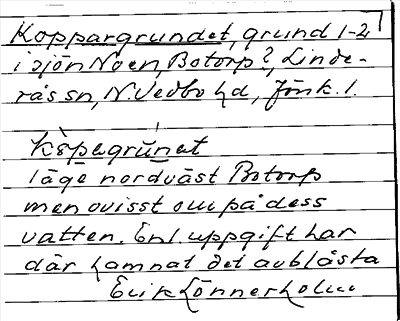 Koppargrundet, grund 1-2
i sjön Noen, Botorp?, Linde-
rås sn, N. Vedbo hd, Jönk. l.
köpagrunat
läge nordväst Botorp
men ovisst om på dess
vatten. Enl. uppgift har
där hamnat det avblåsta
Erik Lönnerholm